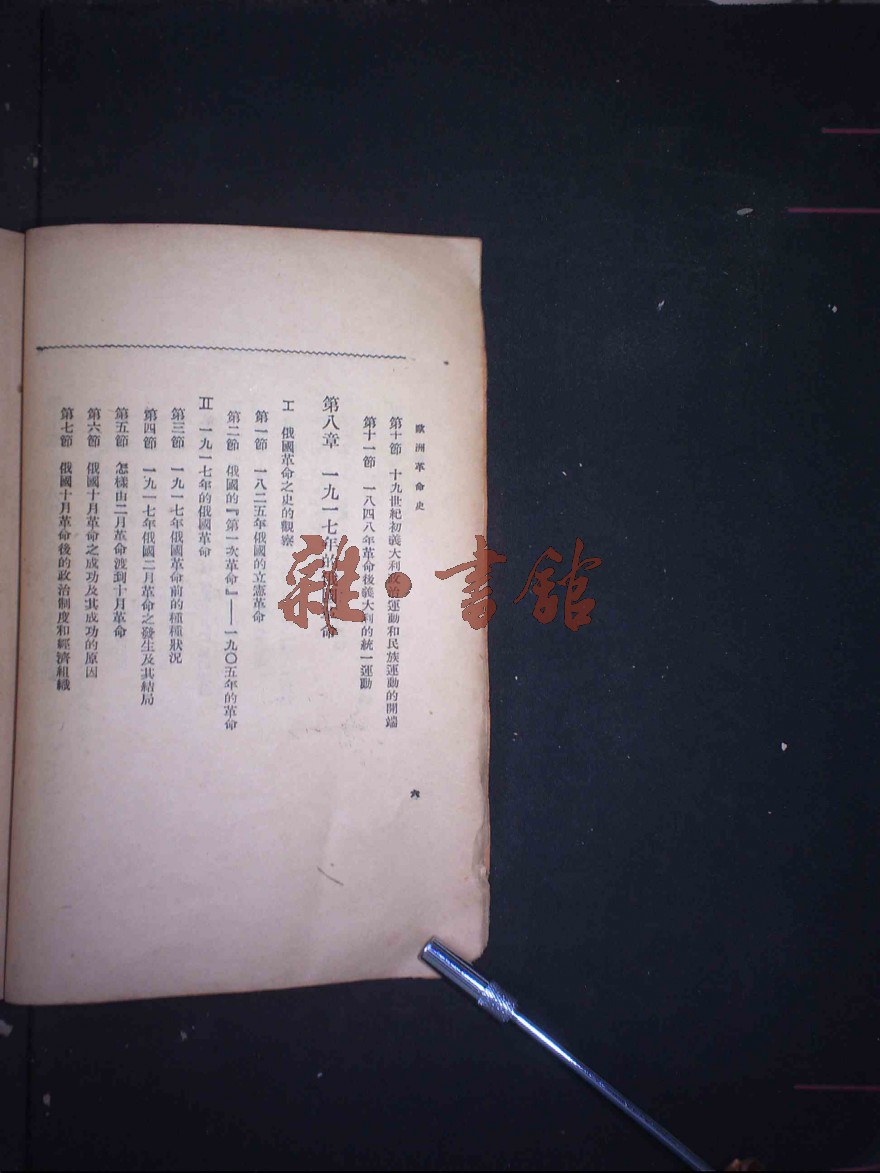 歐洲革命史
六
第十節 十九世紀初義大利政治運動和民族運動的開端
第十一節 一八四八年革命後義大利的統一運動
第八章 一九一七年的俄國革命
I 俄國革命之史的觀察
第一節 一八二五年俄國的立憲革命
第二節 俄國的『第一次革命』——一九〇五年的革命
II 一九一七年的俄國革命
第三節 一九一七年俄國革命前的種種狀況
第四節 一九一七年俄國二月革命之發生及其結局
第五節 怎樣由二月革命渡到十月革命
第六節 俄國十月革命之成功及其成功的原因
第七節 俄國十月革命後的政治制度和經濟組織
雜·書館